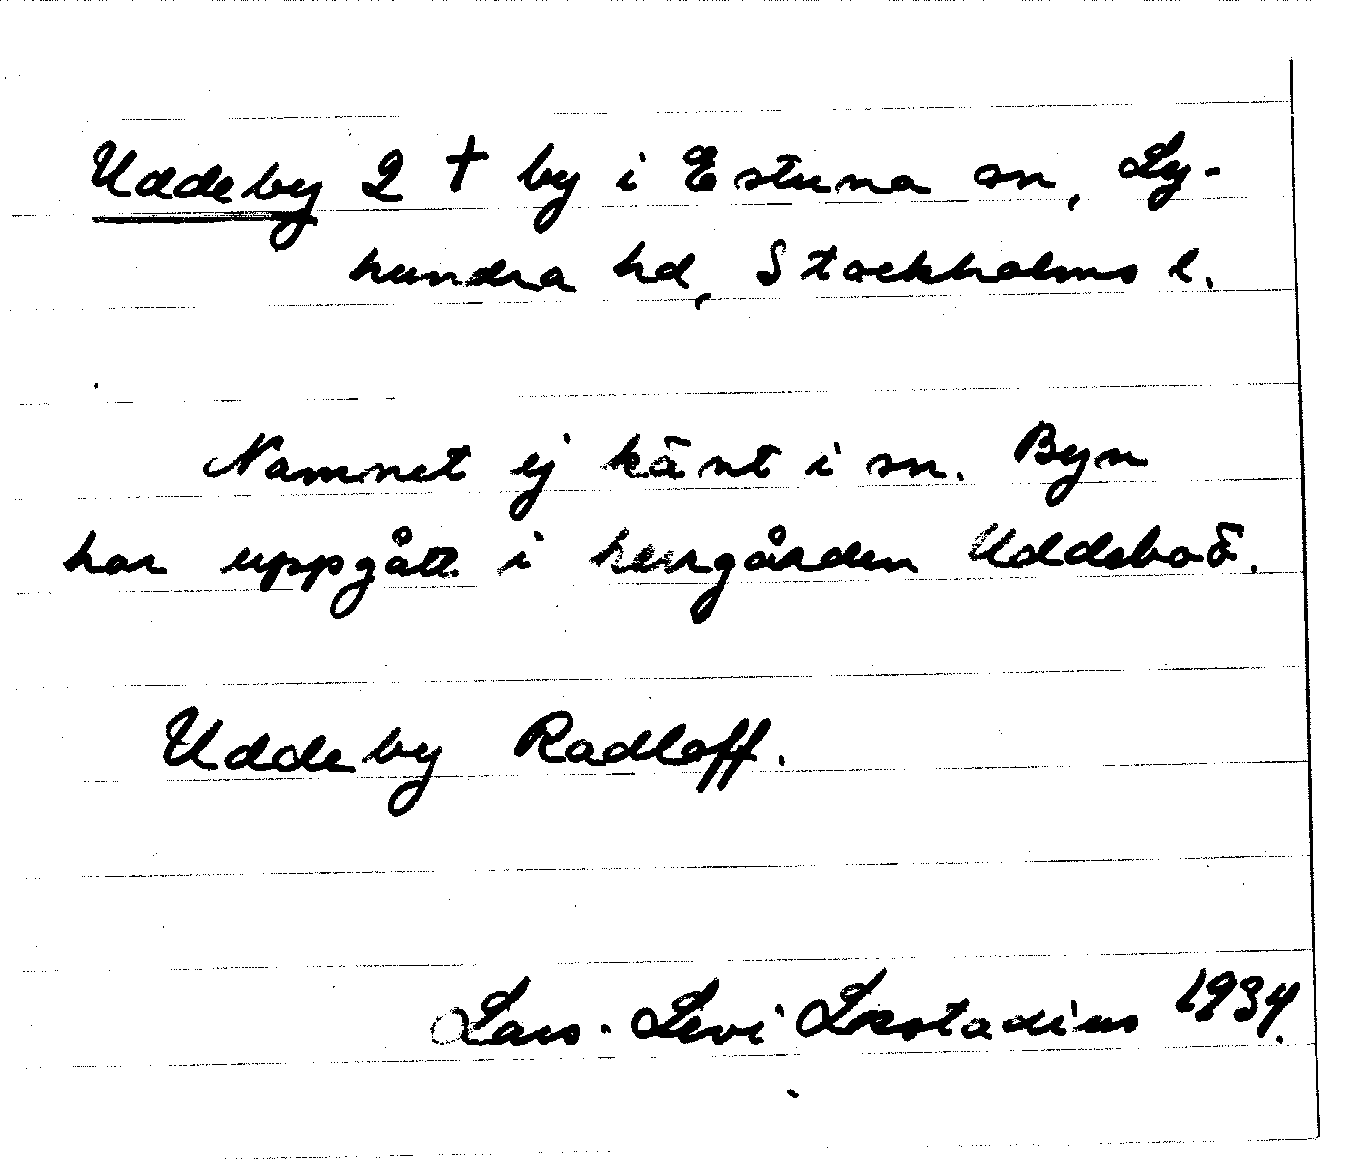 Uddeby 2 † by i Estuna sn, Ly-
hundra hd, Stockholms l.
Namnet ej känt i sn. Byn
har uppgått i herrgården Uddeboö.
Uddeby Radloff.
Lars-Levi Læstadius 1934.